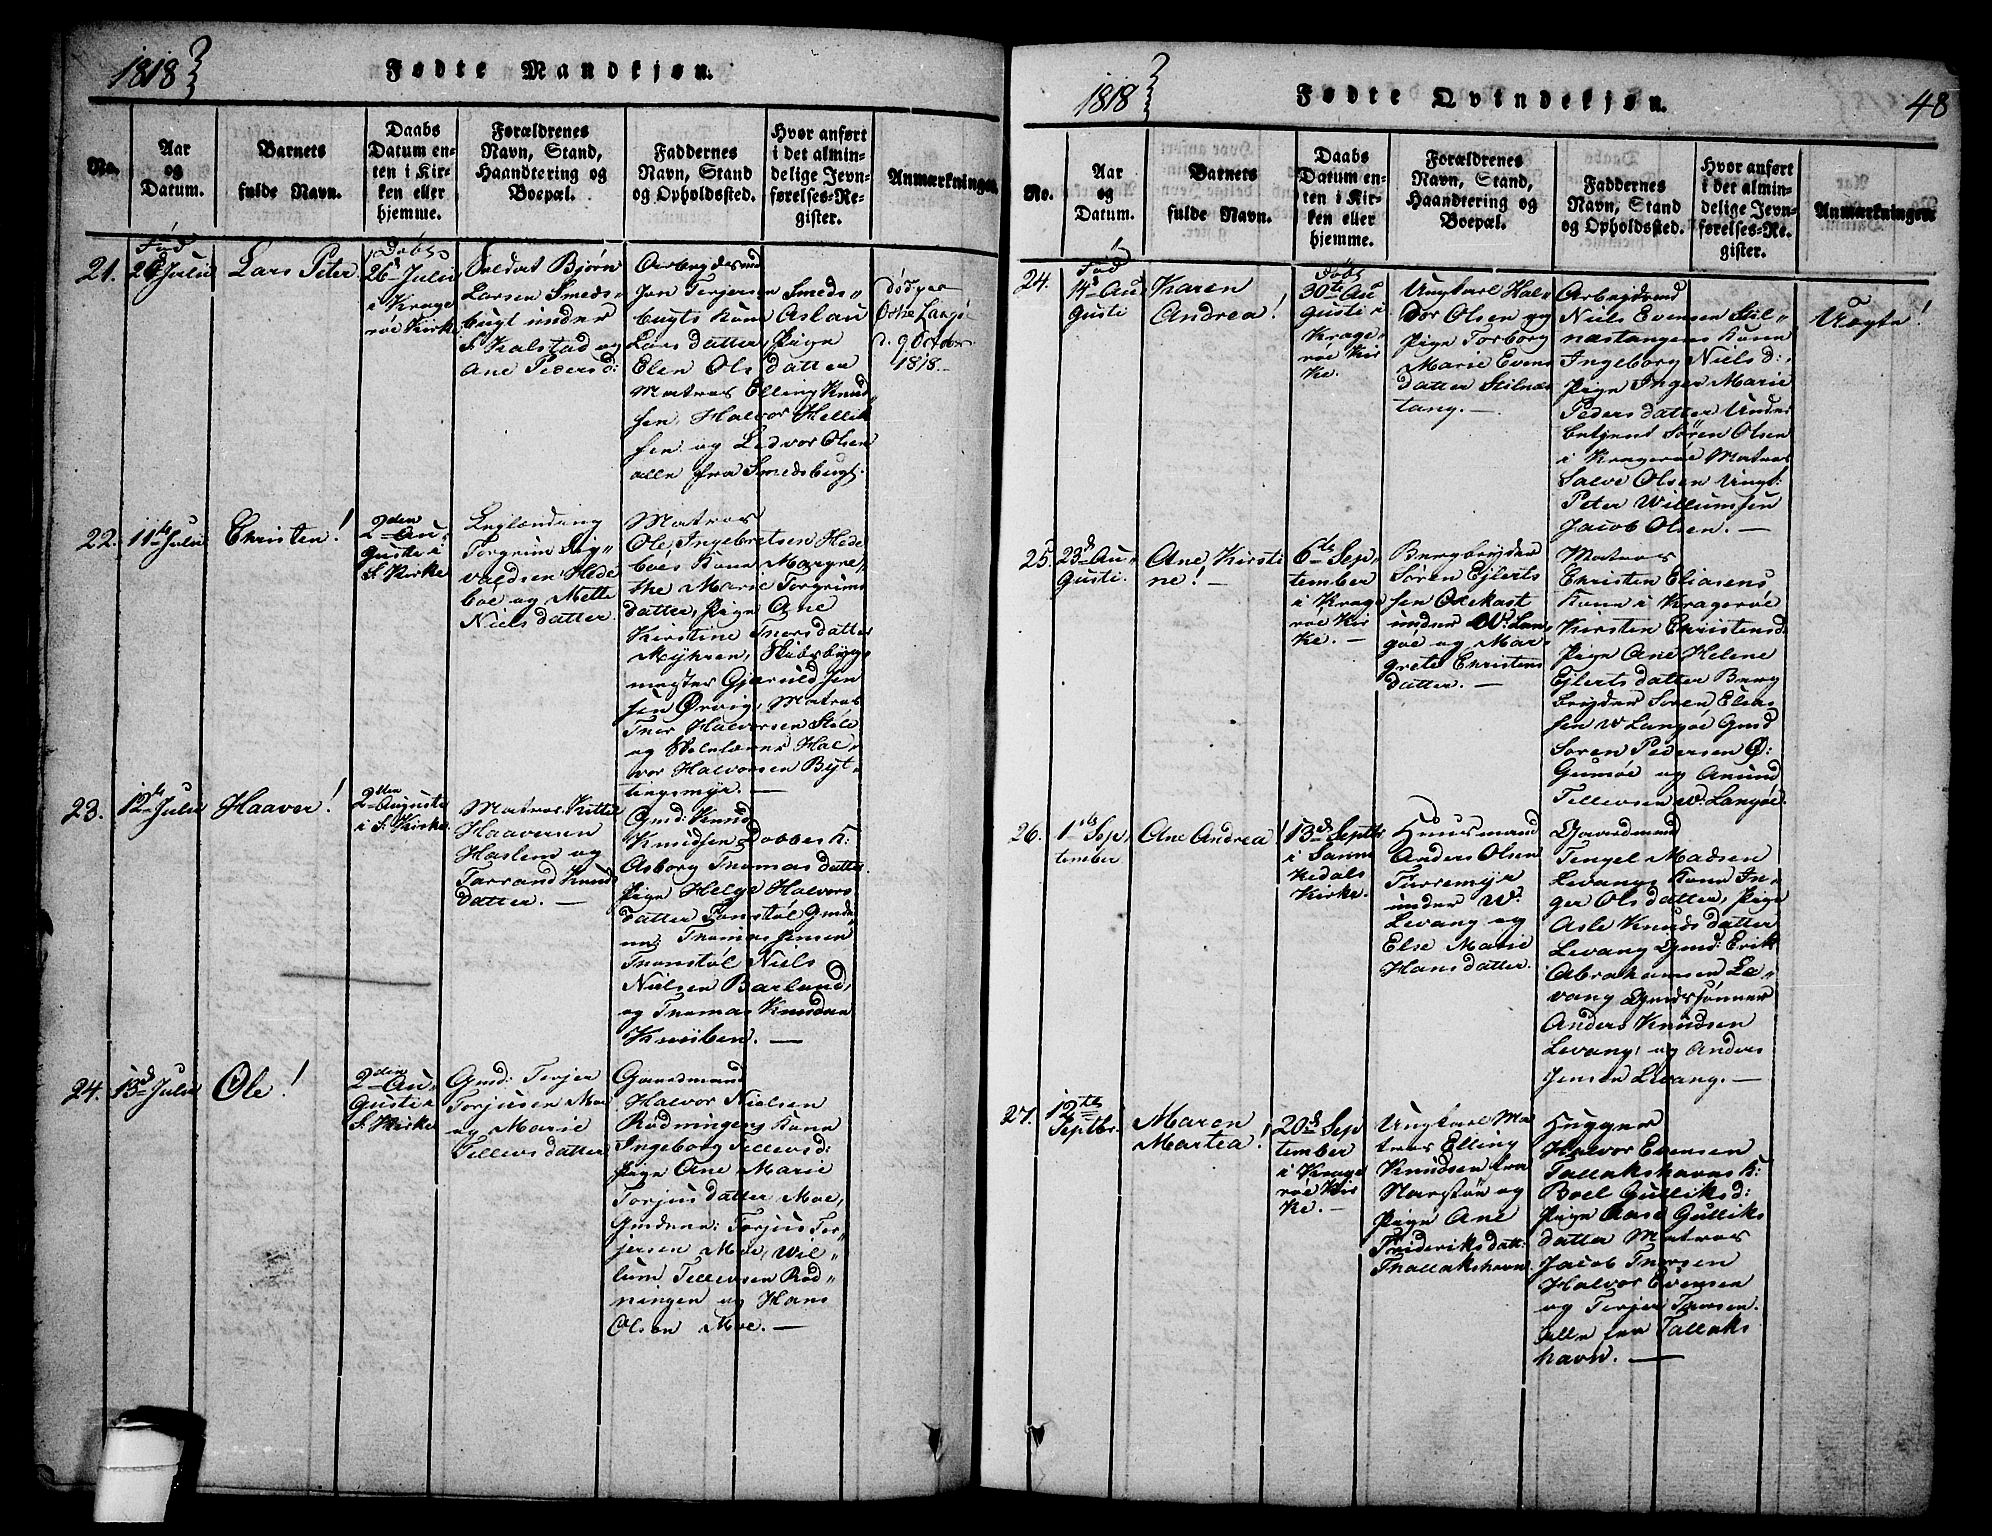 1818
Fødte Mandkjøn.
No.
Aar
og
Datum.
Barnets
fulde Navn.
Daabs
Datum en-
ten i Kir-
ken eller
hjemme.
Forældrenes
Navn, Stand,
Haandtering og
Boepæl.
Faddernes
Navn, Stand
og Opholdssted.
Hvor anført
i det almin-
delige Jevn-
førelses-Re-
gister.
Anmærkninger.
21.
Fød
Julii
Lars Peter
Døbt
26 Julii
i Krage
röe Kirke
Soldat Björn
Larsen Smeds-
bugt under
S. Kalstad og
Ane Peders d:
Arbeydsmd
Jan Terjersen Smeds-
bugts Kone Aslau
Lars datter, Pige
Elen Ols datter
Matros Elling Knud-
sen, Halvor Hellik
sen og Ledvor Olsen
alle fra Smedsbugt.
död paa
Östre Langöe
d. 9 October
1818.
22.
11te Julii
Christen!
2den Au-
gusti i
S. Kirke
Leylænding
Torgrim Sig-
valdsen Hede
boe og Mette
Niels datter.
Matros
Ole Ingebretsen Hede
boes Kone Margre-
the Marie Torgrims
datter, Pige Ane
Kirstine Thors datter
Myhren, Skibsbygg-
mester Gjeruld
sen Ørvig, Matros
Thor Halvorsen
og Skolelærer Hal-
vor Halvorsen Byt-
tingsmyr. —
23.
12te Julii
Haaver!
2den Augusti
i S. Kirke
Matros Kittel
Haaversen
Haslem og
Tarrand Knuds
datter. —
Gmd: Knud
Knudsen Dobbes K:
Asborg Thomas datter.
Pige Helge Halvors
datter Tonstöl Gmde-
ne: Thomas Jensen
Thonstöl Niels
Nielsen Barland,
og Thomas Knudsen
Knuiben. —
24.
13d Julii
Ole!
2den Au-
gusti i
S. Kirke
Gmd: Terjer
Torjusen Moe
og Marie
Tellevs datter
Gaardmand
Halvor Nielsen
Rödningens Kone
Ingeborg Tellevs d:
Pige Ane Marie
Torjus datter Moe,
Gmdene: Torjus Ter-
jersen Moe, Wil-
lum Tellevsen Röd-
ningen og Hans
Olsen Moe. —
1818
Fødte Qvindekjøn.
48
No.
Aar
og
Datum.
Barnets
fulde Navn.
Daabs
Datum en-
ten i Kir-
ken eller
hjemme.
Forældrenes
Navn, Stand,
Haandtering og
Boepæl.
Faddernes
Navn, Stand
og Opholdssted.
Hvor anført
i det almin-
delige Jevn-
førelses-Re-
gister.
Anmærkninger.
24.
Fød
14d Au
gusti
Karen
Andrea!
Döbt
30te Au
gusti i
Krage
röe Kir
ke.
Ungkarl Hal-
dor Olsen og
Pige Torborg
Marie Evens
datter Stilnæs
tang. —
Arbeydsmd
Niels Evensen Stil-
næstangens Kone
Ingeborg Niels d:
Pige Inger Marie
Peders datter Under
betjent Sören Olsen
i Krageröe Matros
Salve Olsen Ungk:
Peter Willumsen
Jacob Olsen. —
Uægte!
25.
23d Au-
gusti.
Ane Kirsti
ne! —
6te Sep-
tember
i Krage
röe Kir
ke. —
Bergbryder
Sören Ejlerts
sen
under W: Lan-
göe og Mar-
grete Christens
datter. —
Matros
Christen Eliasens
Kone i Krageröe
Kirsten Christens d:
Pige Ane Helene
Ejlerts datter Berg
bryder Sören Elias
sen W Langöe Gmd
Sören Pedersen Ø:
Gumöe og Amund
Tellevsen W: Langöe.
26.
1ste Sep-
tember
Ane Andrea!
13d Septbr
i Sanne
Kedals
Kirke.
Huusmand
Anders Olsen
Turremyr
under W:
Levang og
Else Marie
Hans datter.
Gaardmand
Tengel Madsen
Levangs Kone In-
ger Olsdatter, Pige
Asle Knuds datter
Levang Gmd: Erik
Abrahamsen Le-
vang Gmdssönner
Anders Knudsen
Levang, og Anders
Jensen Levang. —
27.
12te
Septbr.
Maren
Martea!
20d Sep
tember
i Krage
röe Kir
ke. —
Ungkarl Ma
tros Elling
Knudsen fra
Narstöe og
Pige Ane
Frideriks datt:
Thallakshavn
Hugger
Halvor Evensen
Tallakshavns K:
Boel Gulliks d:
Pige Aase Gulliks
datter Matros
Jacob Thorsen
Halvor Evensen
og Terjer Thorsen.
alle fra Tallaks
havn. —